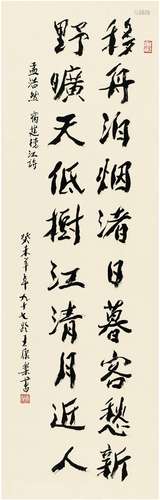 移舟泊烟渚日暮客愁新
野曠天低樹江清月近人
孟浩然 宿建德江詩
癸未年
九十七
康樂書